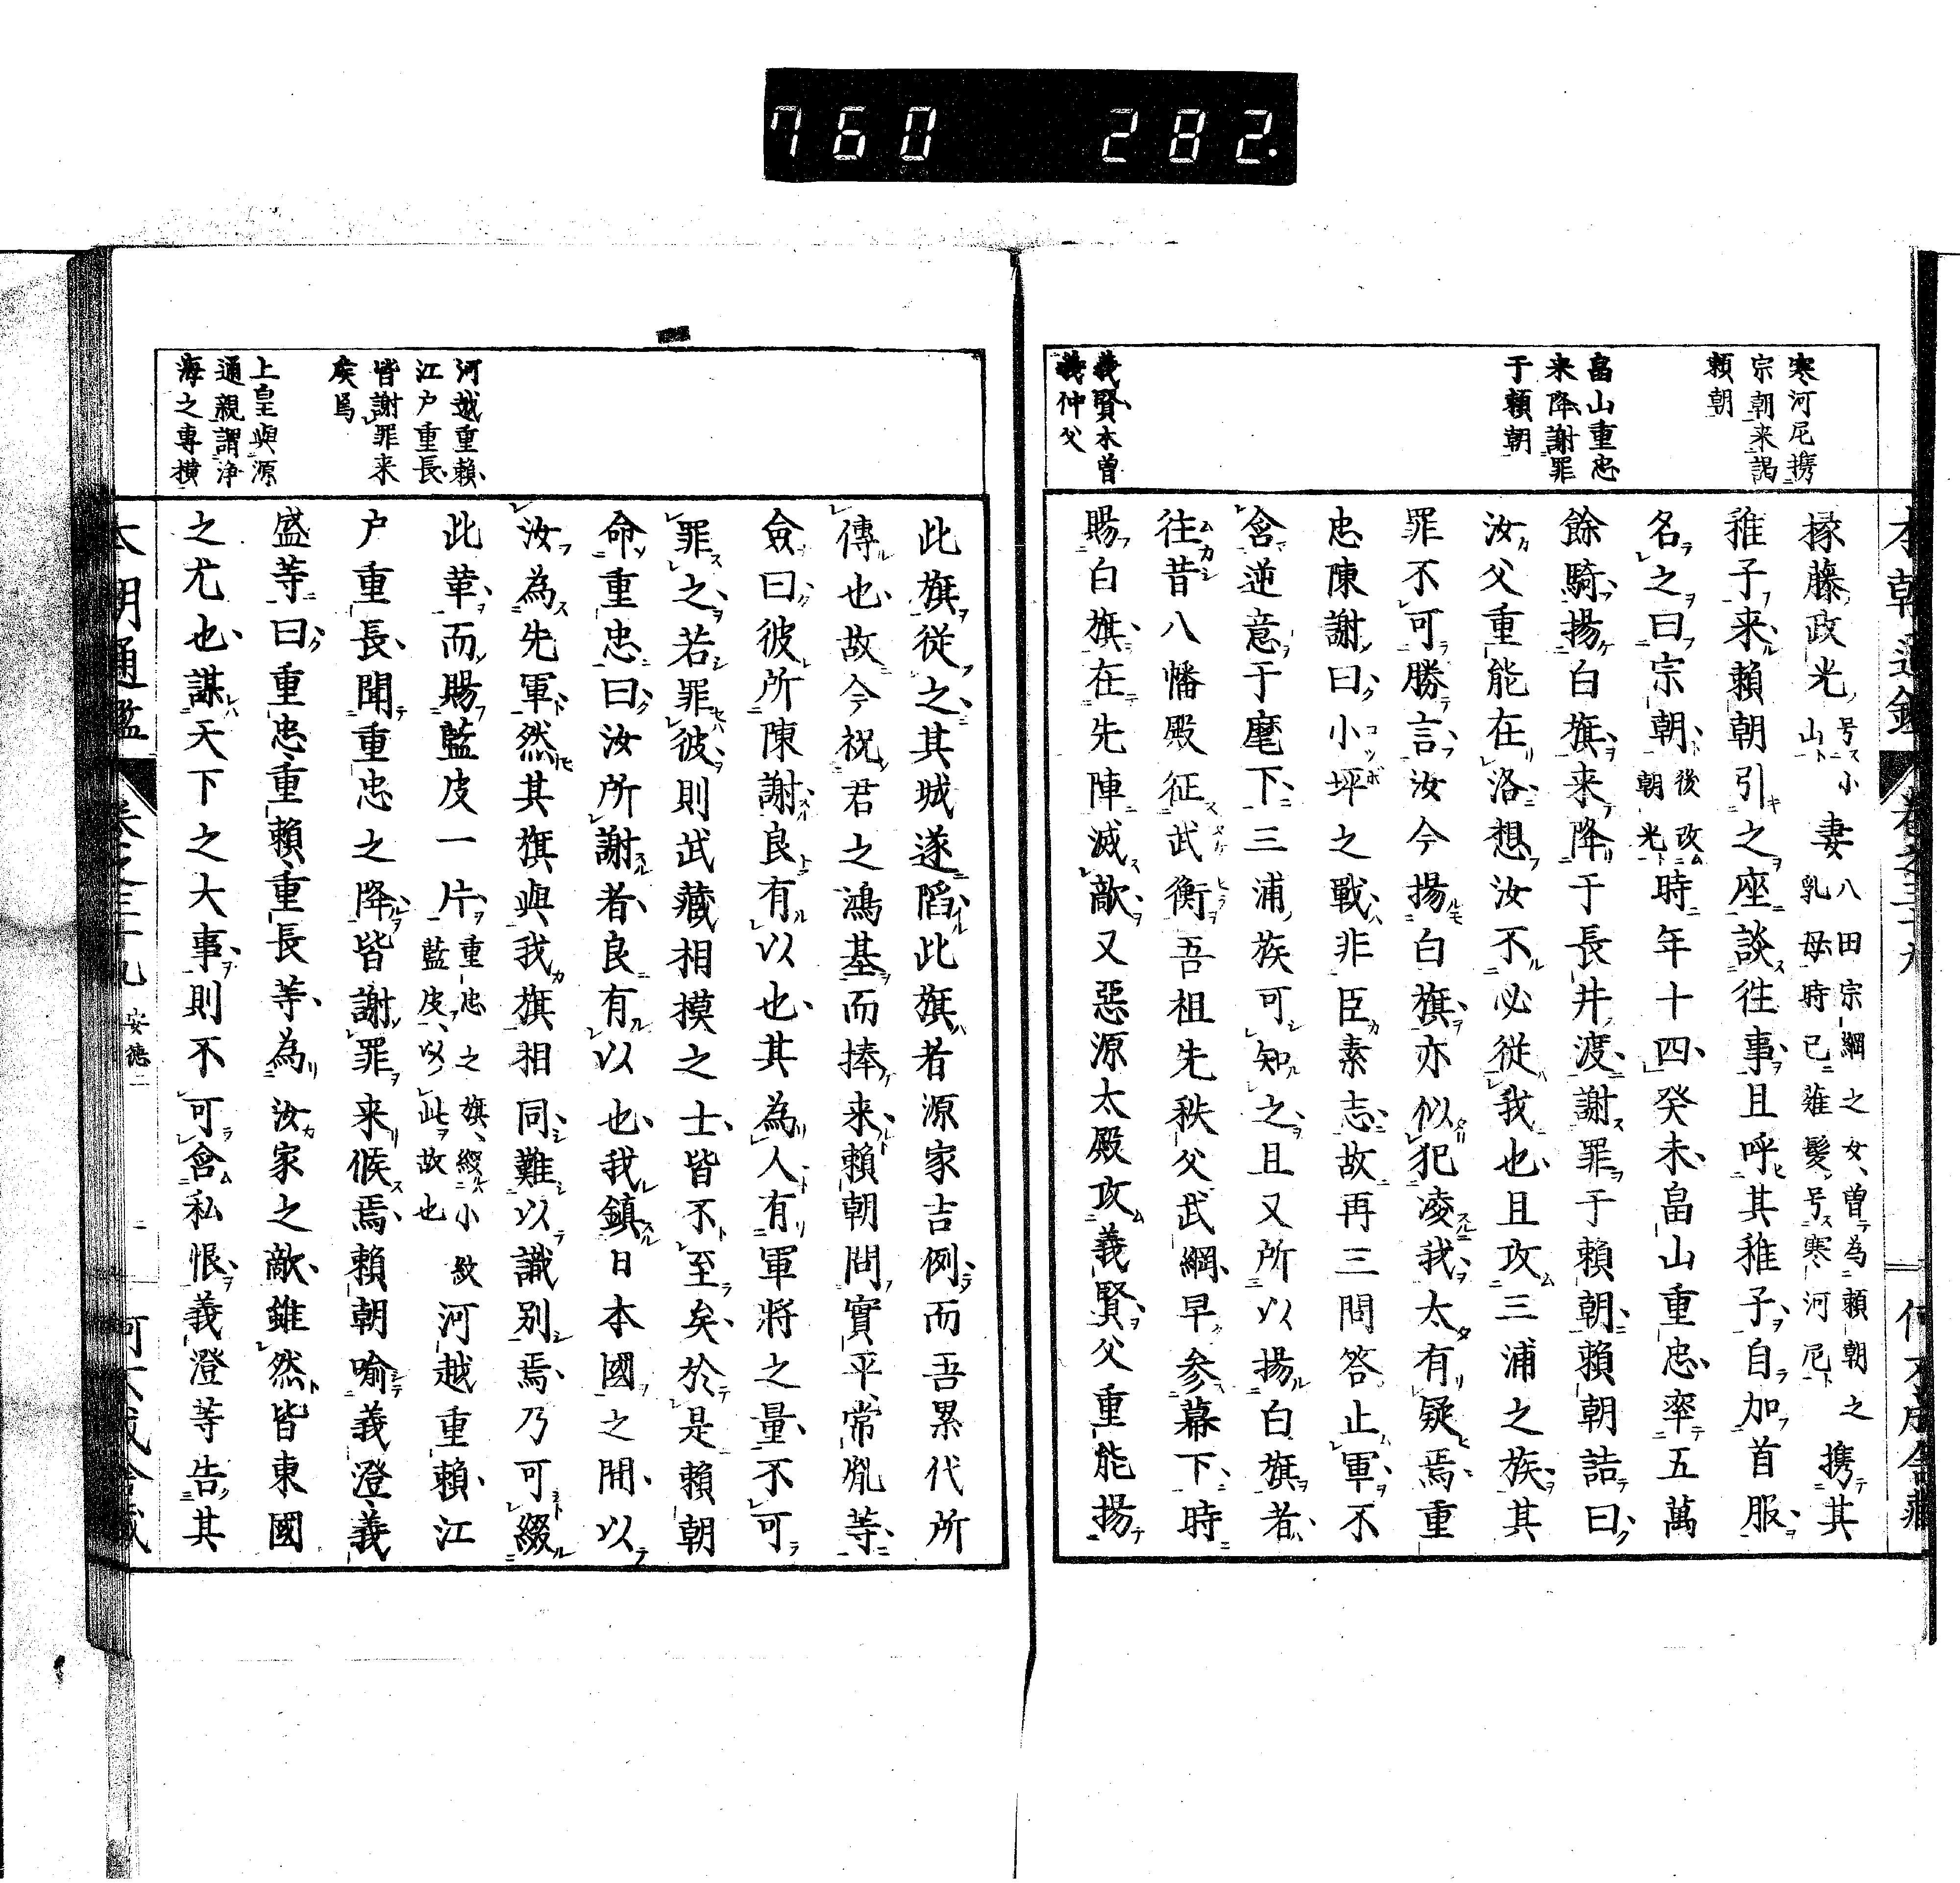 760 282.
寒河尼携
宗朝来謁
頼朝
畠山重忠
来降謝罪
于頼朝
義賢木曽
義仲父
掾藤政光号小山妻八田宗綱之女曽為頼朝之乳母時已薙髪号寒河尼携其
稚子来頼朝引之座談往事且呼其稚子自加首服
名之曰宗朝後改朝光時年十四癸未畠山重忠率五萬
餘騎揚白旗来降于長井渡謝罪于頼朝頼朝詰曰
汝父重能在洛想汝不必従我也且攻三浦之族其
罪不可勝言汝今揚白旗亦似犯凌我太有疑焉重
忠陳謝曰小坪之戰非臣素志故再三問答止軍不
含逆意于麾下三浦族可知之且又所以揚白旗者
往昔八幡殿征武衡吾祖先秩父武綱早参幕下時
賜白旗在先陣滅敵又惡源太殿攻義賢父重能揚
河越重頼
江戸重長
皆謝罪来
候焉
上皇與源
通親謂浄
海之専横
此旗従之其城遂陷此旗者源家吉例而吾累代所
傳也故今祝君之鴻基而捧来頼朝問實平常胤等
僉曰彼所陳謝良有以也其為人有軍将之量不可
罪之若罪彼則武藏相摸之士皆不至矣於是頼朝
命重忠曰汝所謝者良有以也我鎮日本國之間以
汝為先軍然其旗與我旗相同難以識別焉乃可綴
此革而賜藍皮一片重忠之旗綴小紋藍皮以此故也河越重頼江
戸重長聞重忠之降皆謝罪来候焉頼朝喻義澄義
盛等曰重忠重頼重長等為汝家之敵雖然皆東國
之尤也謀天下之大事則不可含私恨義澄等告其
本朝通鑑 卷之三十九 安徳二